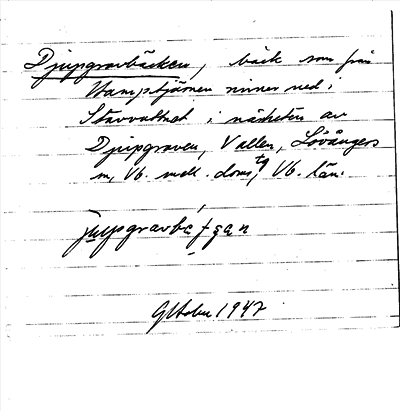 Djupgravbäcken, bäck som från
Stamptjärnen rinner ned i
Stavvattnet i närheten av
Djupgraven, Vallen, Lövångers
sn, Vb. mell. doms tg Vb. län.
1947